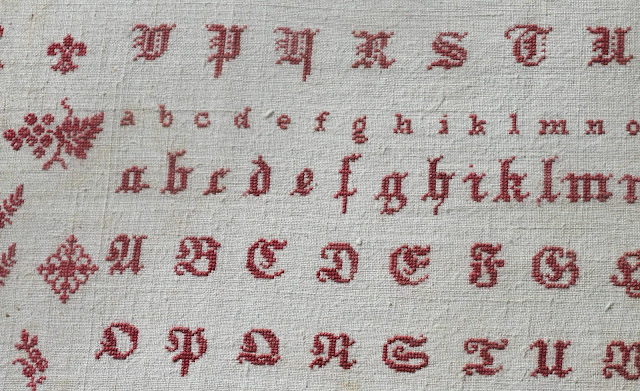 O P Q R S T U
a b c d e f g h i k l m n o
a b c d e f g h i k l m n
A B C D E F G H
O P Q R S T U W